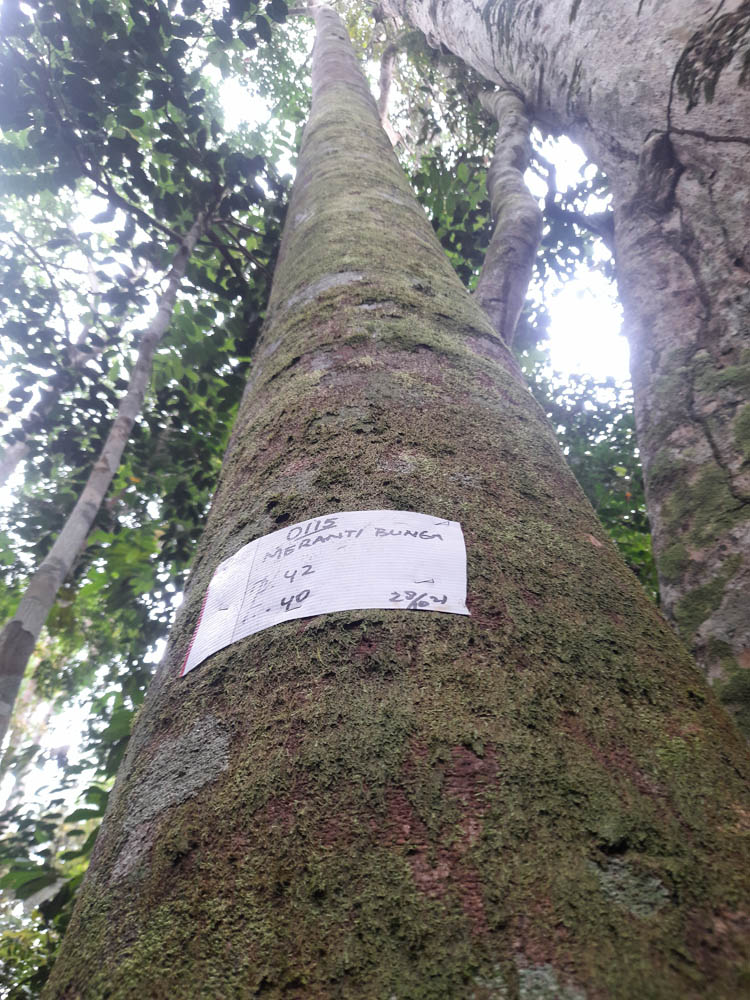 0115
MERANTI BUNGA
42
40 28/6 21